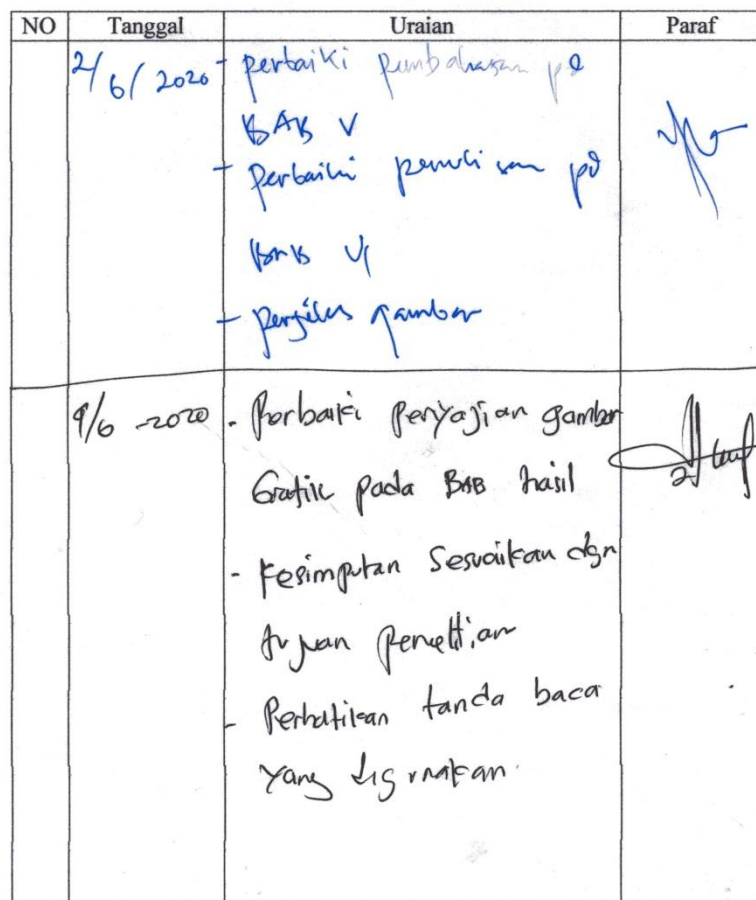 NO Tanggal Uraian Paraf
2/6/2020 - perbaiki pembahasan pd
BAB V
- Perbaiki penulisan pd
BAB VI
- perjelas gambar
9/6 -2020 - Perbaiki Penyajian gambar
Grafik pada BAB hasil
- Kesimpulan Sesuaikan dgn
tujuan penelitian
- Perhatikan tanda baca
yang digunakan.